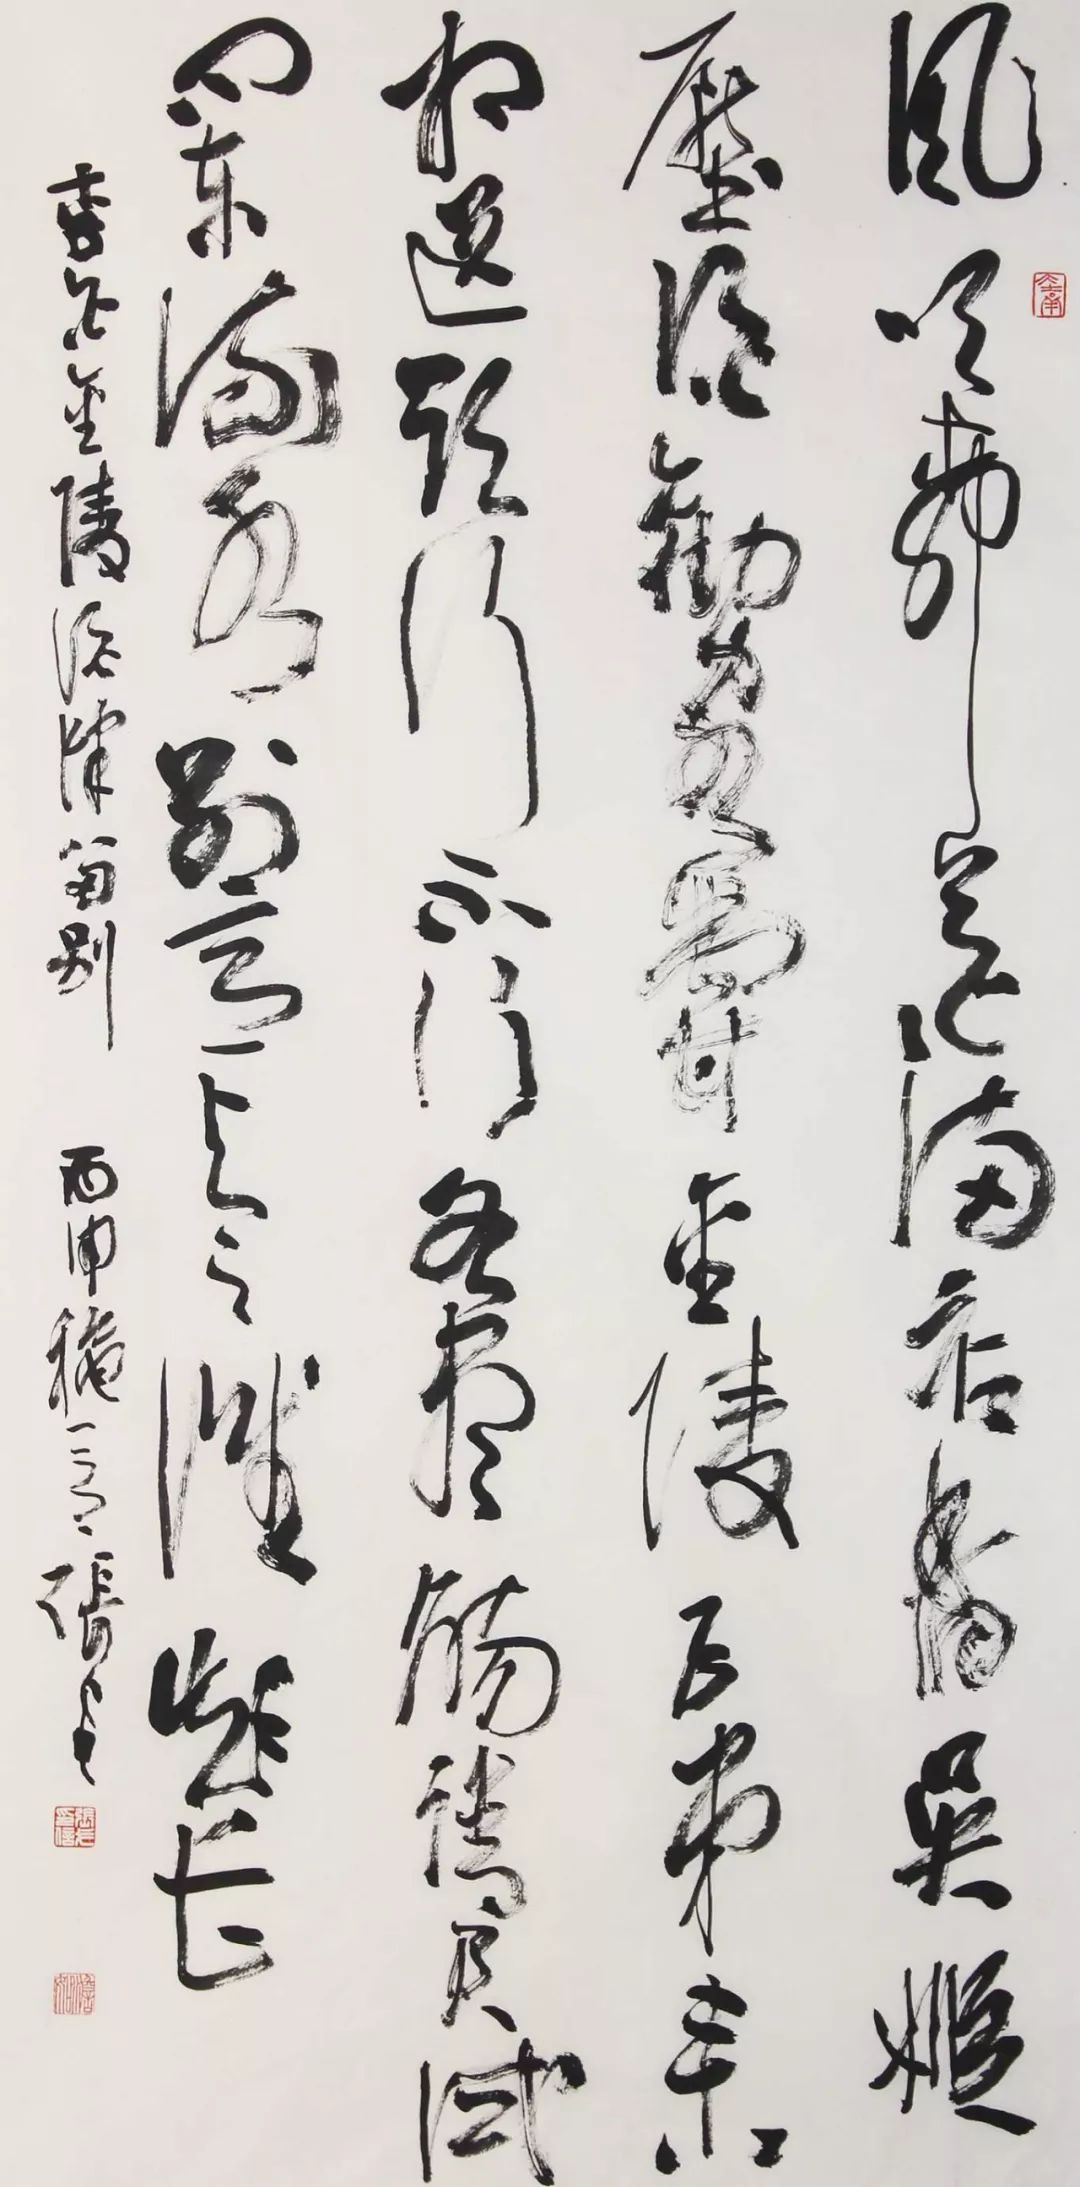 風吹柳花滿店香吳姬
壓酒勸客嘗金陵子弟来
相送欲行不行各盡觴請君試
問東流水別意與之誰短長
李白金陵酒肆留別 丙申穐 張